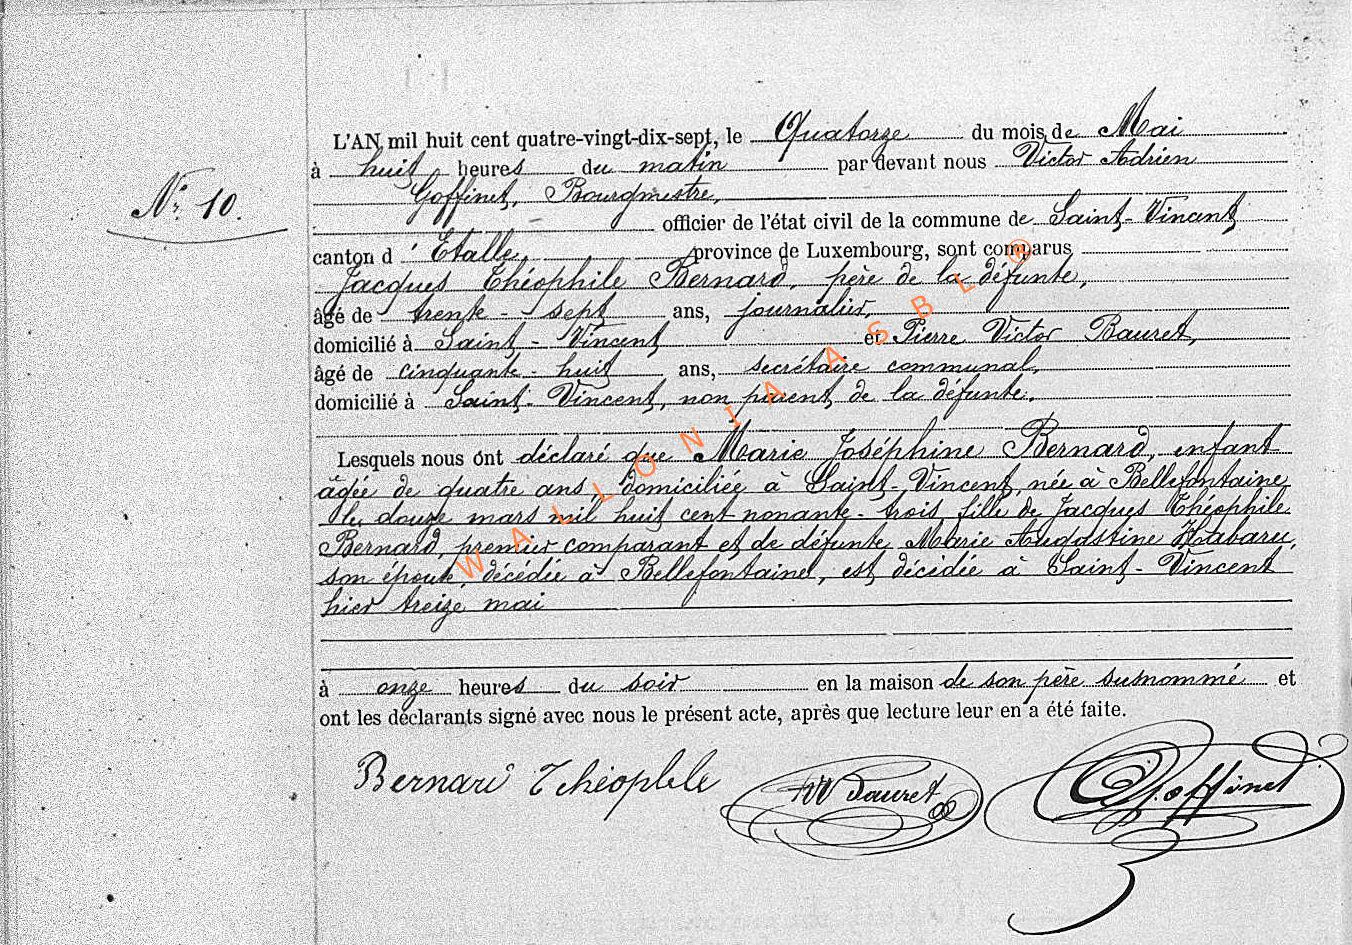 L'AN mil huit cent quatre-vingt-dix-sept, le Quatorze du mois de Mai
à huit heures du matin par devant nous Victor Adrien
N° 10. Goffinet, Bourgmestre,
officier de l'état civil de la commune de Saint-Vincent
canton d'Etalle, province de Luxembourg, sont comparus
Jacques Théophile Bernard, père de la défunte,
âgé de trente-sept ans, journalier,
domicilié à Saint-Vincent et Pierre Victor Bauret,
âgé de cinquante-huit ans, secrétaire communal,
domicilié à Saint-Vincent, non parent de la défunte.
Lesquels nous ont déclaré que Marie Joséphine Bernard, enfant
âgée de quatre ans, domiciliée à Saint-Vincent, née à Bellefontaine
le douze mars mil huit cent nonante-trois, fille de Jacques Théophile
Bernard, premier comparant et de défunte Marie Augustine Habaru,
son épouse, décédée à Bellefontaine, est décédée à Saint-Vincent
hier treize mai
à onze heures du soir en la maison de son père susnommé et
ont les déclarants signé avec nous le présent acte, après que lecture leur en a été faite.
Bernard Théophile Bauret Goffinet
WALLONIA ASBL ®